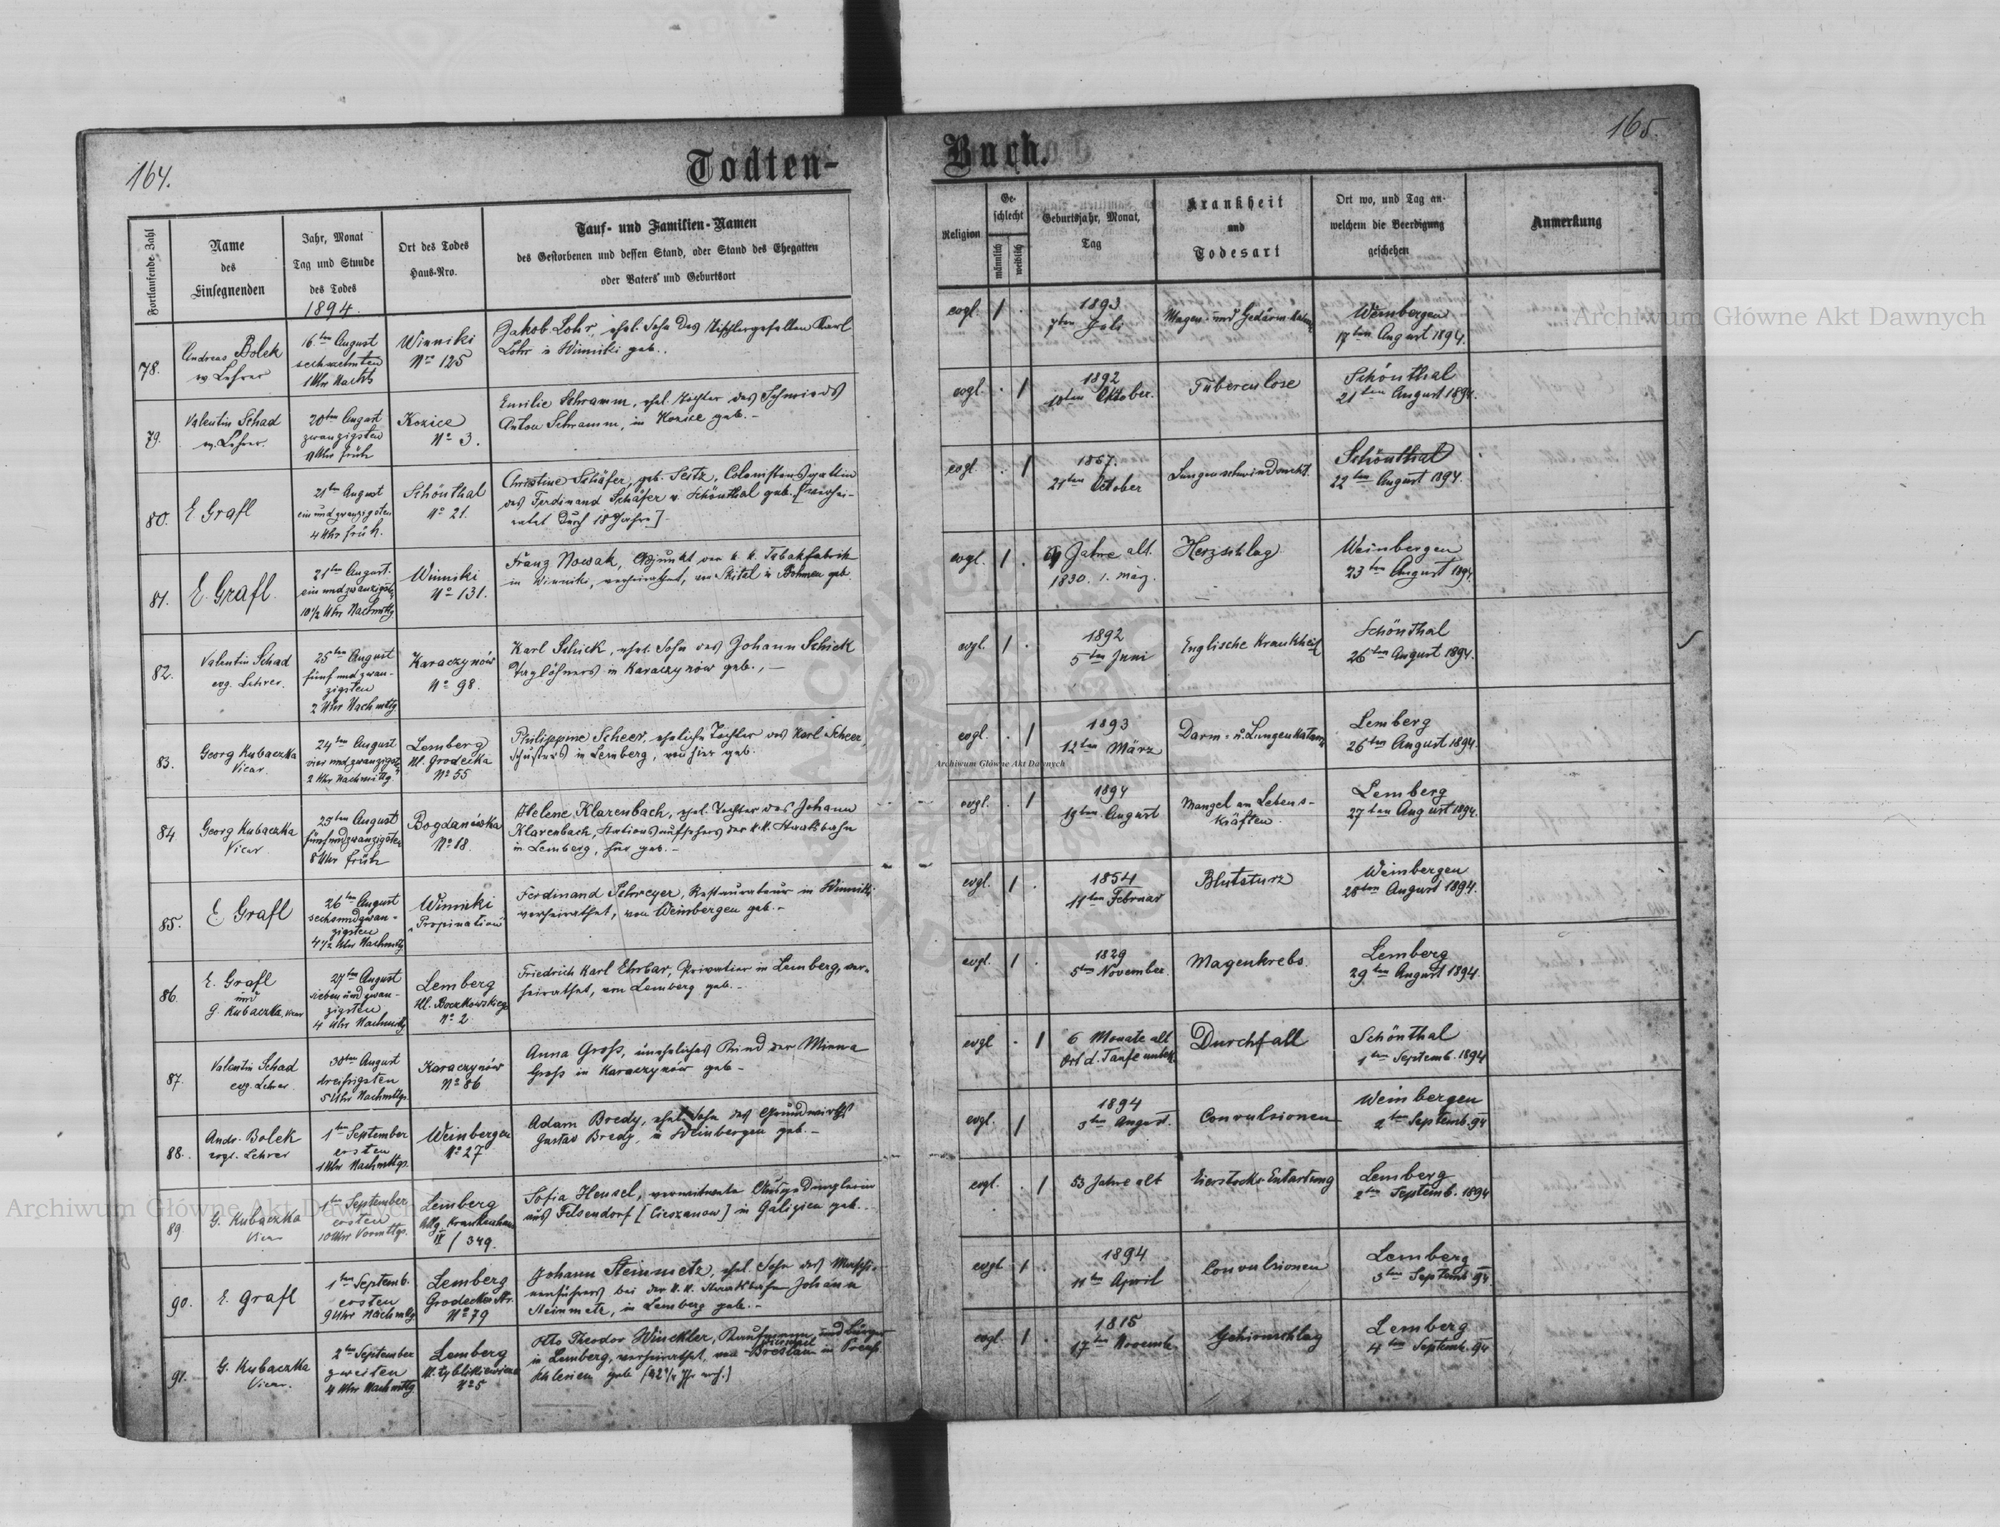 164.
Todten-
Fortlaufende Zahl
Name
des
Einsegnenden
Jahr, Monat
Tag und Stunde
des Todes
1894.
Ort des Todes
Haus-Nro.
Tauf- und Familien-Namen
des Gestorbenen und dessen Stand, oder Stand des Ehegatten
oder Vaters und Geburtsort
78.
Andreas Bolek
Lehrer
16ten August
sechzehnten
1 Uhr Nachts
Winniki
No 125
Jakob Lohr, ehel. Sohn des Tischlergesellen Karl
Lohr in Winniki geb.
79.
Valentin Schad
Lehrer.
20ten August
zwanzigsten
Uhr früh
Kozice
No 3.
Emilie Schramm, ehel. Tochter des Schmieds
Anton Schramm, in Kozice geb. -
80.
E Grafl
21ten August
ein und zwanzigsten
4 Uhr früh.
Schönthal
No 21.
Christine Schäfer, geb. Seitz, Colonistensgattin
des Ferdinand Schäfer v. Schönthal geb. [verhei-
ratet durch 18 Jahre].
81.
E. Grafl.
21ten August.
ein und zwanzigsten
10 1/2 Uhr Nachmttg.
Winniki
No 131.
Franz Nowak, Adjunkt der k. k. Tabakfabrik
in Winniki, verheirathet, von Skital in Böhmen geb.
82.
Valentin Schad
evg. Lehrer.
25ten August
fünf und zwan-
zigsten
2 Uhr Nachmttg
Karaczynów
No 98.
Karl Schick, ehel. Sohn des Johann Schick
Taglöhners in Karaczynów geb., -
83.
Georg Kubaczka
Vicar.
24ten August
vier und zwanzigsten
2 Uhr Nachmittg
Lemberg
Ul. Grodecka
No 55
Philippine Scheer, eheliche Tochter des Karl Scheer,
Schusters in Lemberg, von hier geb.
84.
Georg Kubaczka
Vicar
25ten August
fünfundzwanzigsten
8 Uhr früh
Bogdanówka
No 18.
Helene Klarenbach, ehel. Tochter des Johann
Klarenbach, Stationsaufsehers der k.k. Staatsbahn
in Lemberg, hier geb. -
85.
E Grafl
26ten August
sechsundzwan-
zigsten
4 1/2 Uhr Nachmttg
Winniki
"Propination"
Ferdinand Schreyer, Restaurateur in Winniki,
verheirathet, von Weinbergen geb. -
86.
E. Grafl
und
G. Kubaczka, Vicar
27ten August
sieben und zwan-
zigsten
4 Uhr Nachmttg
Lemberg
Ul. Boczkowskiego
No 2.
Friedrich Karl Ehrbar, Privatier in Lemberg, ver-
heirathet, von Lemberg geb. -
87.
Valentin Schad
evg. Lehrer
30ten August
dreißigsten
5 Uhr Nachmttgs.
Karaczynów
No 86
Anna Groß, uneheliches Kind der Minna
Groß in Karaczynów geb -
88.
Andr. Bolek
evgl. Lehrer
1ten September
ersten
1 Uhr Nachmttgs.
Weinbergen
No 27
Adam Bredy, ehel. Sohn des Grundwirths
Gustav Bredy, in Weinbergen geb. -
89.
G. Kubaczka
Vicar
1ten September
ersten
10 Uhr Vormttgs.
Lemberg
Allg. Krankenhaus
IV / 349.
Sofia Hensel, verwitwete Ausgedinglerin
aus Felsendorf [Cieszanow] in Galizien geb.
90.
E. Grafl
1ten Septemb.
ersten
9 Uhr Nachmttg
Lemberg
Grodecka Str.
No 79
Johann Steinmetz, ehel. Sohn des Maschi-
nenführers bei der k.k. Staatsbahn Johann
Steinmetz, in Lemberg geb. -
91.
G. Kubaczka
Vicar.
2ten September
zweiten
4 Uhr Nachmttg
Lemberg
No 5
Otto Theodor Winckler, Kaufmann und Bürger
in Lemberg, verheirathet, von Breslau in Preuß.
Schlesien geb
Buch.
165.
Religion
Ge-
schlecht
männlich
weiblich
Geburtsjahr, Monat,
Tag
Krankheit
und
Todesart
Ort wo, und Tag an-
welchem die Beerdigung
geschehen
Anmerkung
evgl. 1 .
1893
7ten Juli
Magen- und Gedärm-Katarrh
Weinbergen
17ten August 1894.
evgl. . 1
1892
10ten Oktober.
Tuberculose
Schönthal
21ten August 1894.
evgl. . 1
1857.
21ten October
Lungenschwindsucht.
Schönthal
22ten August 1894.
evgl. 1 .
Jahre alt.
1830. 1. März.
Herzschlag
Weinbergen
23ten August 1894.
evgl. 1 .
1892
5ten Juni
Englische Krankheit
Schönthal
26ten August 1894.
evgl. . 1
1893
12ten März
Darm- u. Lungenkatarrh
Lemberg
26ten August 1894.
evgl. . 1
1894
19ten August
Mangel an Lebens-
kräften.
Lemberg
27ten August 1894.
evgl. 1 .
1854
11ten Februar
Blutsturz
Weinbergen
28ten August 1894.
evgl. 1 .
1829
5ten November.
Magenkrebs.
Lemberg
29ten August 1894.
evgl . 1
6 Monate alt
Ort d. Taufe unbek.
Durchfall
Schönthal
1ten Septemb. 1894
evgl. 1
1894
3ten August.
Convulsionen
Weinbergen
2ten Septemb. 94
evgl. . 1
53 Jahre alt
Eierstocks Entartung
Lemberg
2ten Septemb. 1894
evgl 1 .
1894
11ten April
Convulsionen
Lemberg
3ten Septemb. 94
evgl 1 .
1815
17ten Novemb.
Gehirnschlag
Lemberg
4ten Septemb. 94
Archiwum Główne Akt Dawnych
Archiwum Główne Akt Dawnych
Archiwum Główne Akt Dawnych